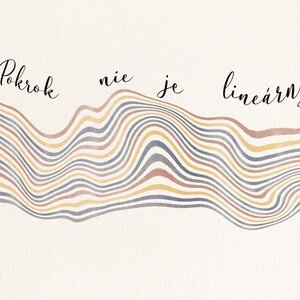 Pokrok nie je lineárny